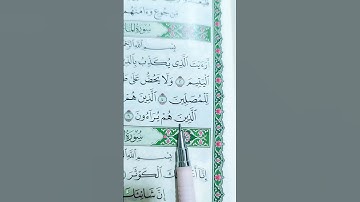 مِن جُوعٍ وَءَامَنَهُم
سُورَةُ الْمَا
بِسْمِ اللَّهِ
أَرَءَيْتَ الَّذِي يُكَذِّبُ
الْيَتِيمَ ۝ وَلَا يَحُضُّ عَلَىٰ
لِّلْمُصَلِّينَ ۝ الَّذِينَ هُمْ
الَّذِينَ هُمْ يُرَاءُونَ ۝
سُورَةُ
بِسْمِ اللَّهِ
إِنَّا الْكَوْثَرَ
إِنَّ شَانِئَكَ